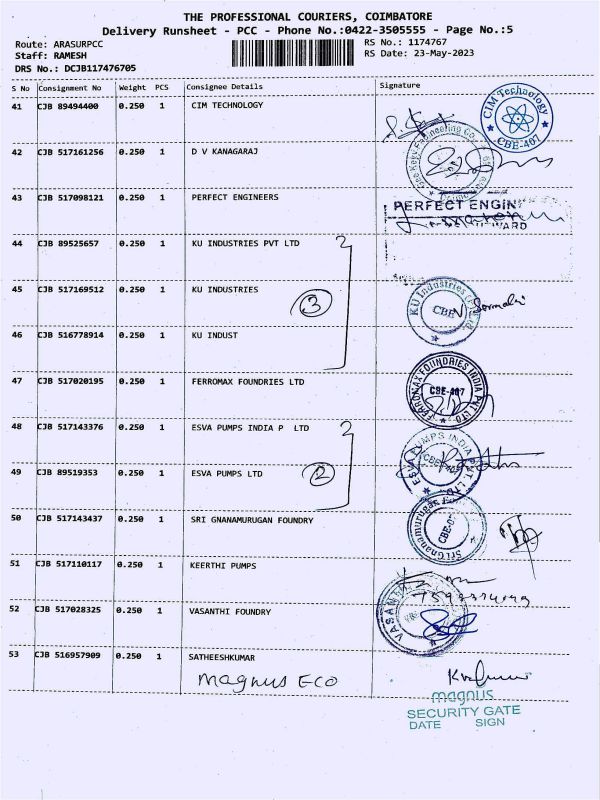 THE PROFESSIONAL COURIERS, COIMBATORE
Delivery Runsheet - PCC - Phone No.:0422-3505555 - Page No.:5
Route: ARASURPCC
RS No.: 1174767
Staff: RAMESH
RS Date: 23-May-2023
DRS No.: DCJB117476705
S No Consignment No Weight PCS Consignee Details Signature
41 CJB 89494400 0.250 1 CIM TECHNOLOGY
CIM Technology
CBE-407
42 CJB 517161256 0.250 1 D V KANAGARAJ
43 CJB 517098121 0.250 1 PERFECT ENGINEERS
PERFECT ENGIN
44 CJB 89525657 0.250 1 KU INDUSTRIES PVT LTD
45 CJB 517169512 0.250 1 KU INDUSTRIES
3
KU Industries
CBE
46 CJB 516778914 0.250 1 KU INDUST
47 CJB 517020195 0.250 1 FERROMAX FOUNDRIES LTD
FERROMAX FOUNDRIES INDIA PVT LTD
CBE-407
48 CJB 517143376 0.250 1 ESVA PUMPS INDIA P LTD
49 CJB 89519353 0.250 1 ESVA PUMPS LTD
2
ESVA PUMPS INDIA
50 CJB 517143437 0.250 1 SRI GNANAMURUGAN FOUNDRY
Sri Gnanamurugan
51 CJB 517110117 0.250 1 KEERTHI PUMPS
52 CJB 517028325 0.250 1 VASANTHI FOUNDRY
53 CJB 516957909 0.250 1 SATHEESHKUMAR
Magnus ECO
magnus
SECURITY GATE
DATE SIGN